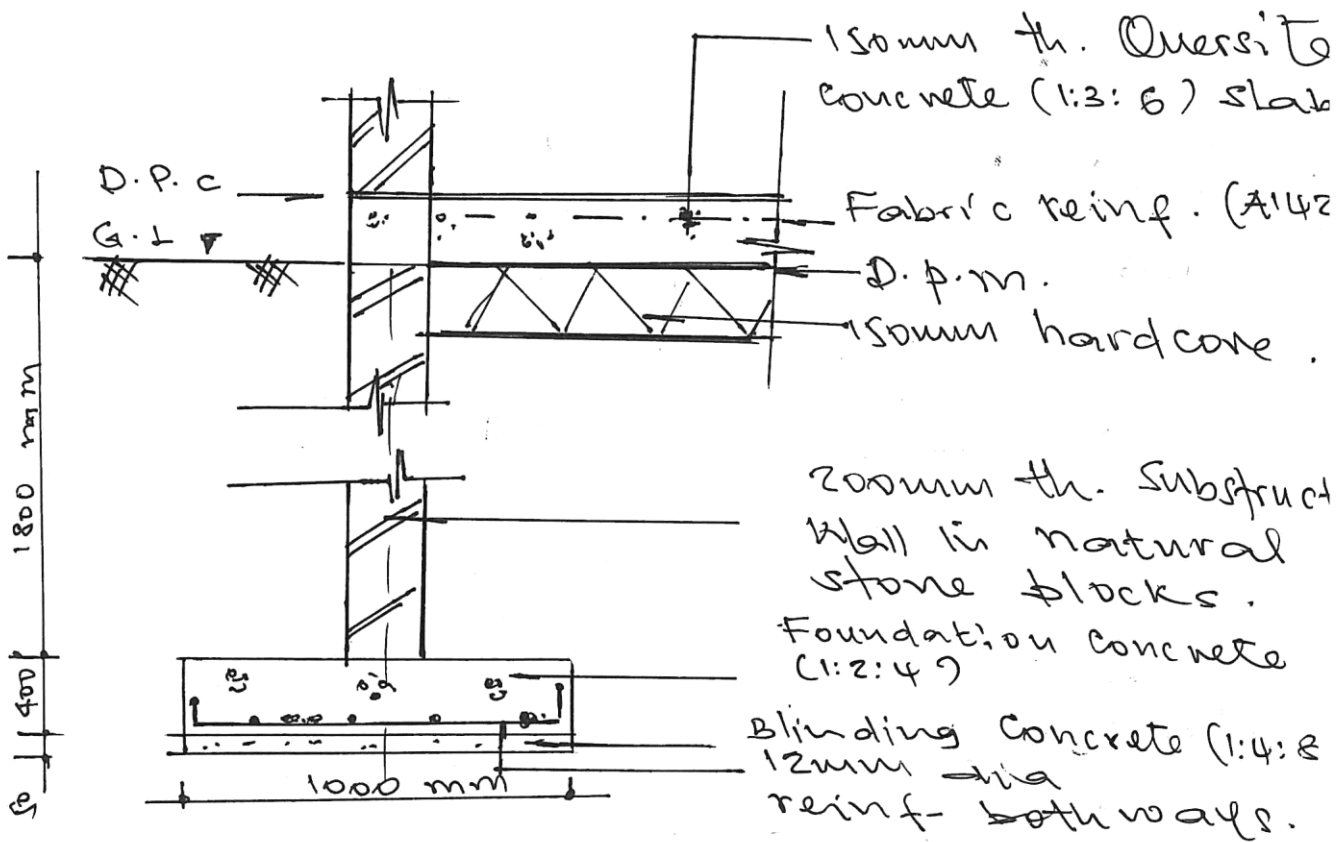 150mm th. Oversite
concrete (1:3:6) Slab
D.P.C
Fabric reinf. (A142
G.L
D.p.m.
150mm hardcore.
1800 mm
200mm th. Substruct
Wall in natural
stone blocks.
Foundation concrete
(1:2:4)
400
Blinding Concrete (1:4:8
12mm dia
reinf- both ways.
50
1000 mm